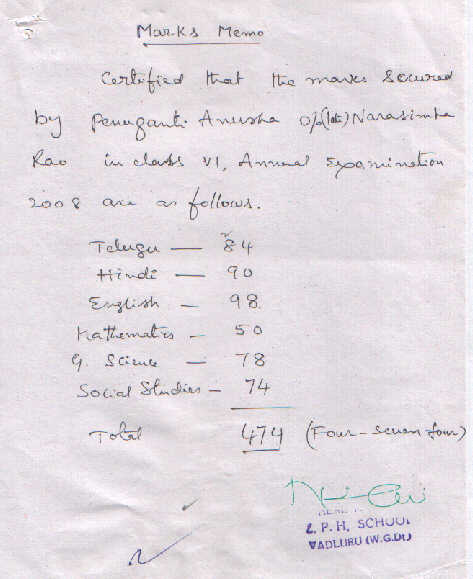 Marks Memo
Certified that the marks Secured
by Penuganti Anusha D/o (late) Narasimha
Rao in class VI, Annual Examination
2008 are as follows.
Telugu — 84
Hindi — 90
English — 98
Mathematics — 50
G. Science — 78
Social Studies — 74
Total 474 (Four-seven four)
Z. P. H. SCHOOL
VADLURU (W.G.Dt)